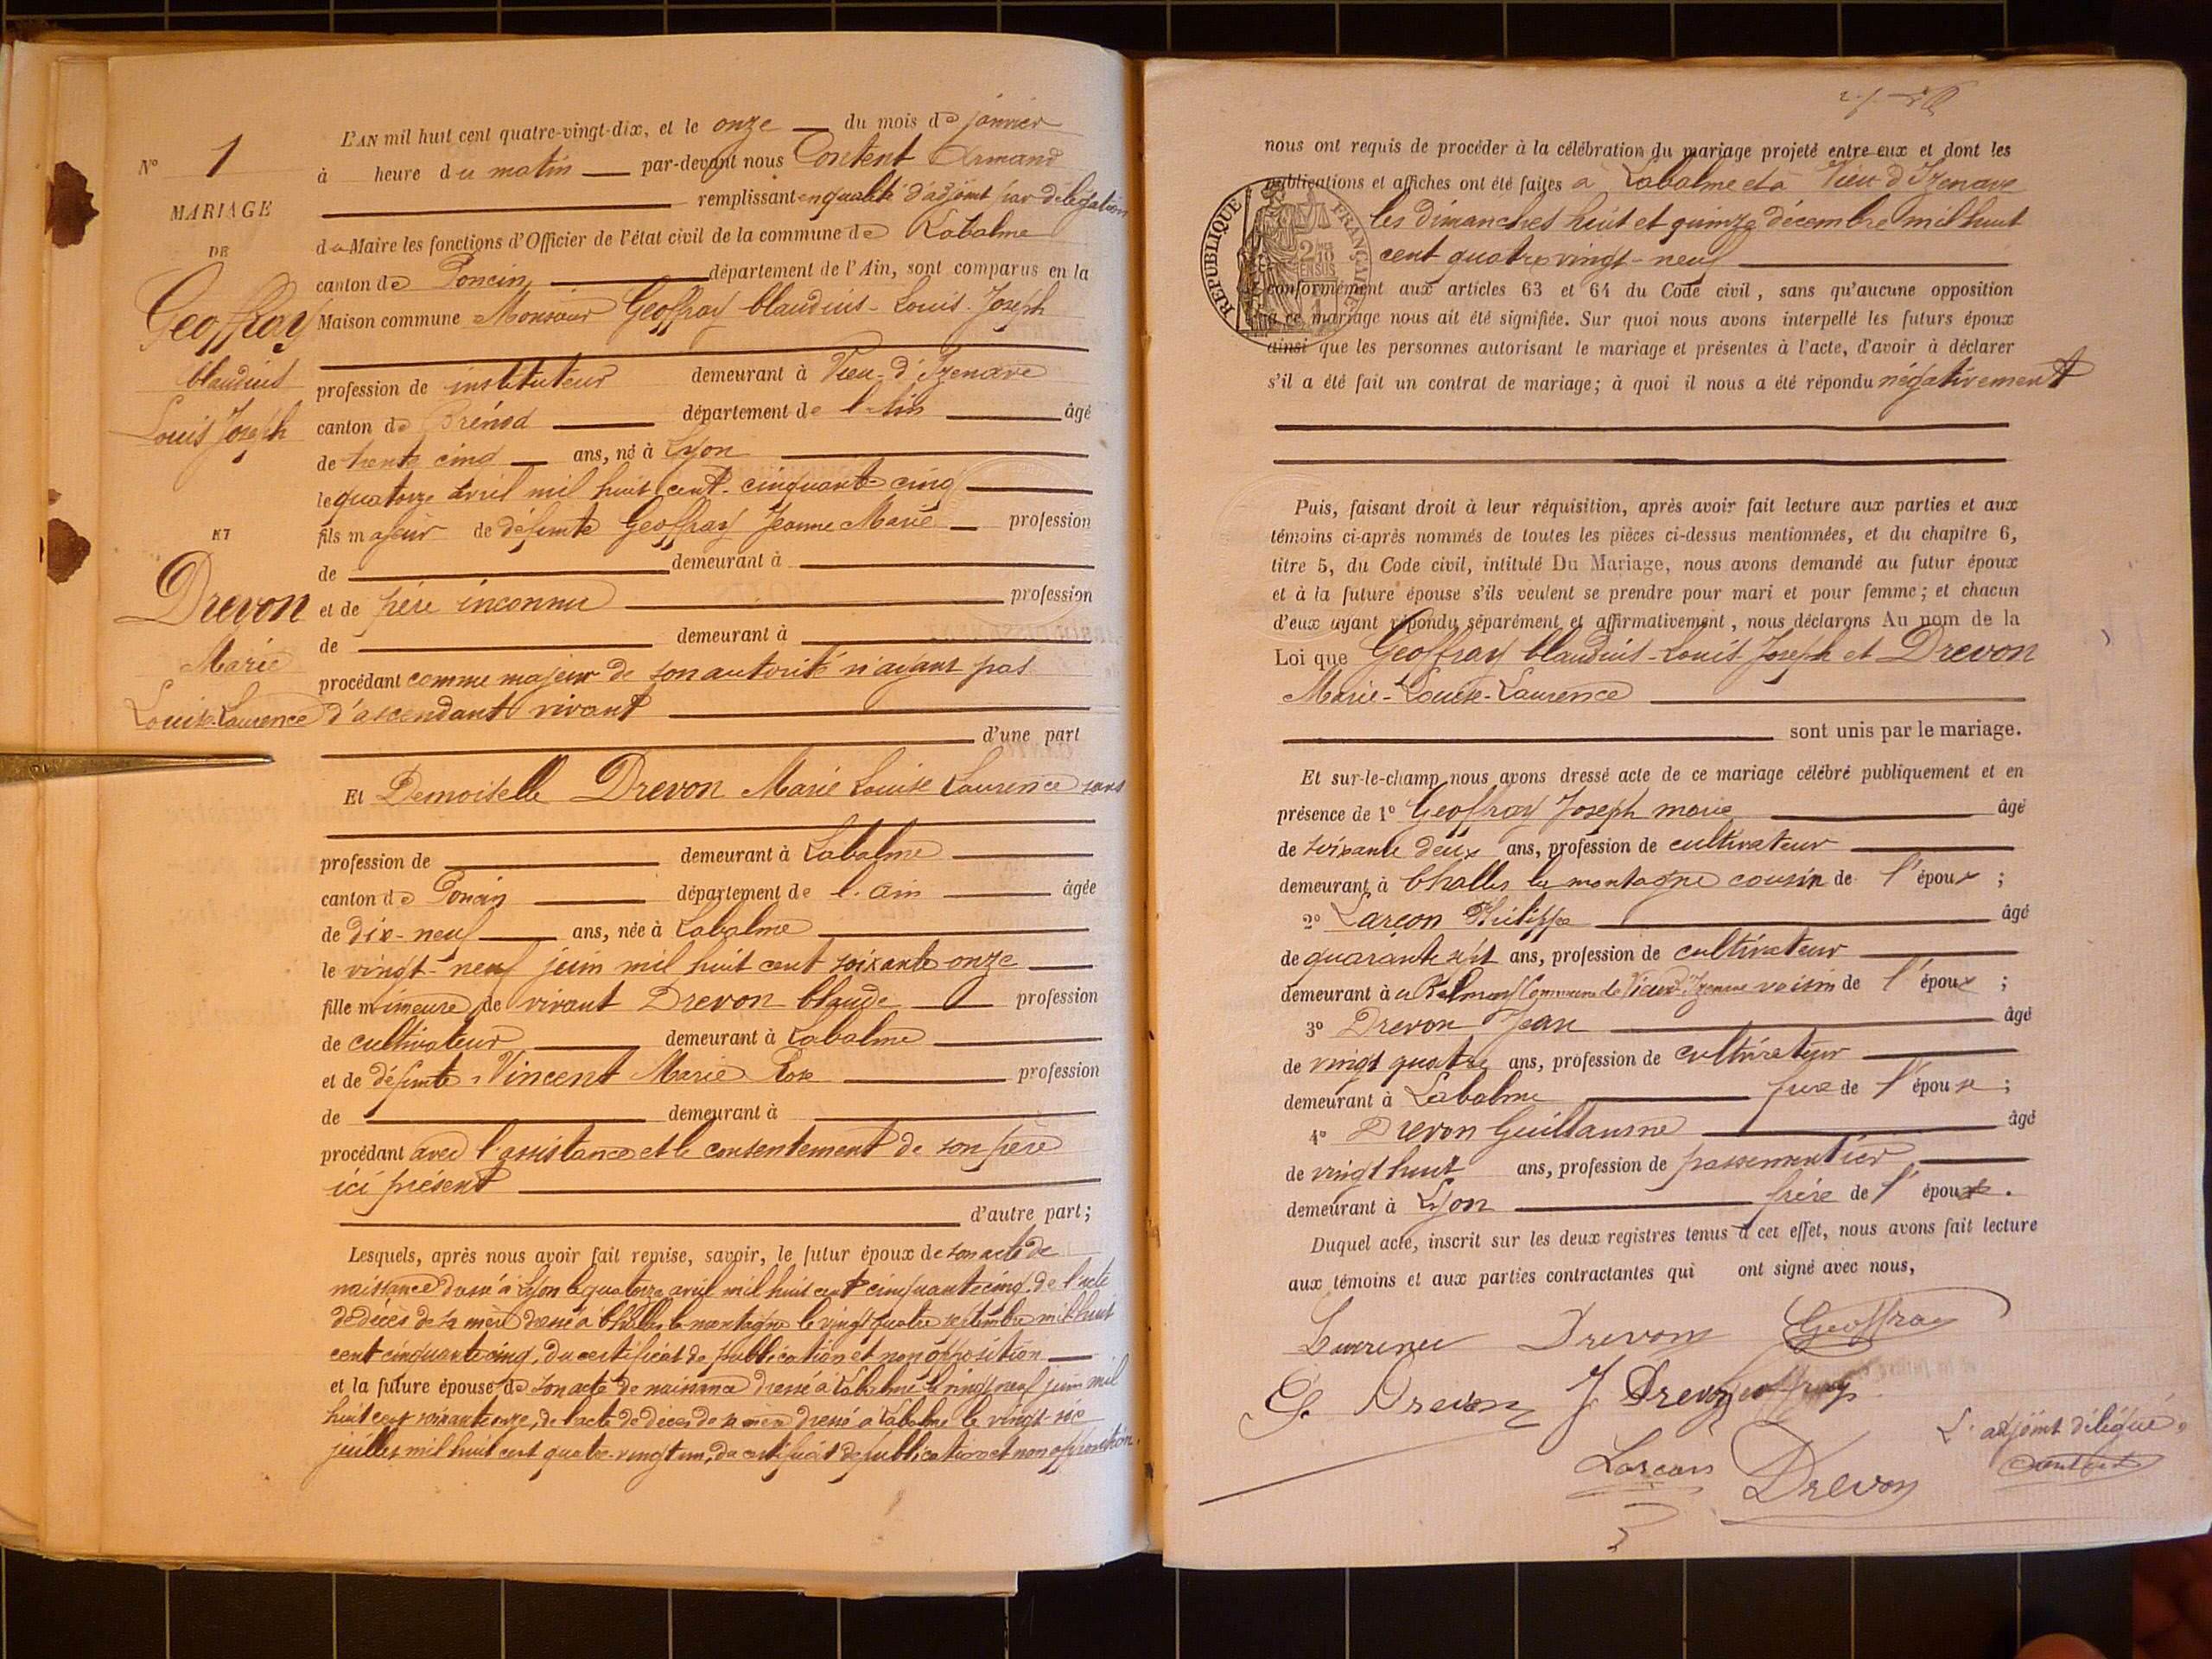 L'AN mil huit cent quatre-vingt-dix, et le onze du mois de janvier
N° 1
à heure du matin par-devant nous Content Armand
MARIAGE
remplissant en qualité d'adjoint par délégation
DE
du Maire les fonctions d'Officier de l'état civil de la commune de Labalme
canton de Poncin département de l'Ain, sont comparus en la
Geoffray
Maison commune Monsieur Geoffray Claudius-Louis-Joseph
Claudius
profession de instituteur demeurant à Vieu-d'Izenave
Louis Joseph
canton de Brénod département de l'Ain âgé
de trente cinq ans, né à Lyon
le quatorze avril mil huit cent cinquante cinq
fils majeur de défunte Geoffray Jeanne Marie profession
ET
de demeurant à
Drevon
et de père inconnu profession
de demeurant à
Marie
procédant comme majeur de son autorité n'ayant pas
Louise-Laurence
d'ascendant vivant
d'une part
Et Demoiselle Drevon Marie Louise Laurence sans
profession de demeurant à Labalme
canton de Poncin département de l'Ain âgée
de dix-neuf ans, née à Labalme
le vingt-neuf juin mil huit cent soixante onze
fille mineure de vivant Drevon Claude profession
de cultivateur demeurant à Labalme
et de défunte Vincent Marie Rose profession
de demeurant à
procédant avec l'assistance et le consentement de son père
ici présent
d'autre part;
Lesquels, après nous avoir fait remise, savoir, le futur époux de son acte de
naissance dressé à Lyon le quatorze avril mil huit cent cinquante cinq, de l'acte
de décès de sa mère dressé à Challes la montagne le vingt quatre septembre mil huit
cent cinquante cinq, du certificat de publication et non opposition
et la future épouse de son acte de naissance dressé à Labalme le vingt neuf juin mil
huit cent soixante onze, de l'acte de décès de sa mère dressé à Labalme le vingt-six
juillet mil huit cent quatre-vingt un, du certificat de publication et non opposition.
nous ont requis de procéder à la célébration du mariage projeté entre eux et dont les
publications et affiches ont été faites à Labalme et à Vieu d'Izenave
les dimanches huit et quinze décembre mil huit
cent quatre vingt-neuf
RÉPUBLIQUE FRANÇAISE
2/10 EN SUS
conformément aux articles 63 et 64 du Code civil, sans qu'aucune opposition
à ce mariage nous ait été signifiée. Sur quoi nous avons interpellé les futurs époux
ainsi que les personnes autorisant le mariage et présentes à l'acte, d'avoir à déclarer
s'il a été fait un contrat de mariage; à quoi il nous a été répondu négativement
Puis, faisant droit à leur réquisition, après avoir fait lecture aux parties et aux
témoins ci-après nommés de toutes les pièces ci-dessus mentionnées, et du chapitre 6,
titre 5, du Code civil, intitulé Du Mariage, nous avons demandé au futur époux
et à la future épouse s'ils veulent se prendre pour mari et pour femme; et chacun
d'eux ayant répondu séparément et affirmativement, nous déclarons Au nom de la
Loi que Geoffray Claudius-Louis-Joseph et Drevon
Marie-Louise-Laurence
sont unis par le mariage.
Et sur-le-champ nous avons dressé acte de ce mariage célébré publiquement et en
présence de 1° Geoffray Joseph marie âgé
de soixante deux ans, profession de cultivateur
demeurant à Challes la montagne cousin de l'époux;
2° Larçon Philippe âgé
de quarante sept ans, profession de cultivateur
demeurant à Commune de Vieu d'Izenave voisin de l'époux;
3° Drevon Jean âgé
de vingt quatre ans, profession de cultivateur
demeurant à Labalme frère de l'épouse;
4° Drevon Guillaume âgé
de vingt huit ans, profession de passementier
demeurant à Lyon frère de l'épouse.
Duquel acte, inscrit sur les deux registres tenus à cet effet, nous avons fait lecture
aux témoins et aux parties contractantes qui ont signé avec nous,
Laurence Drevon Geoffray
G. Drevon J Drevon Geoffray
L'adjoint délégué
Larçon Drevon Content